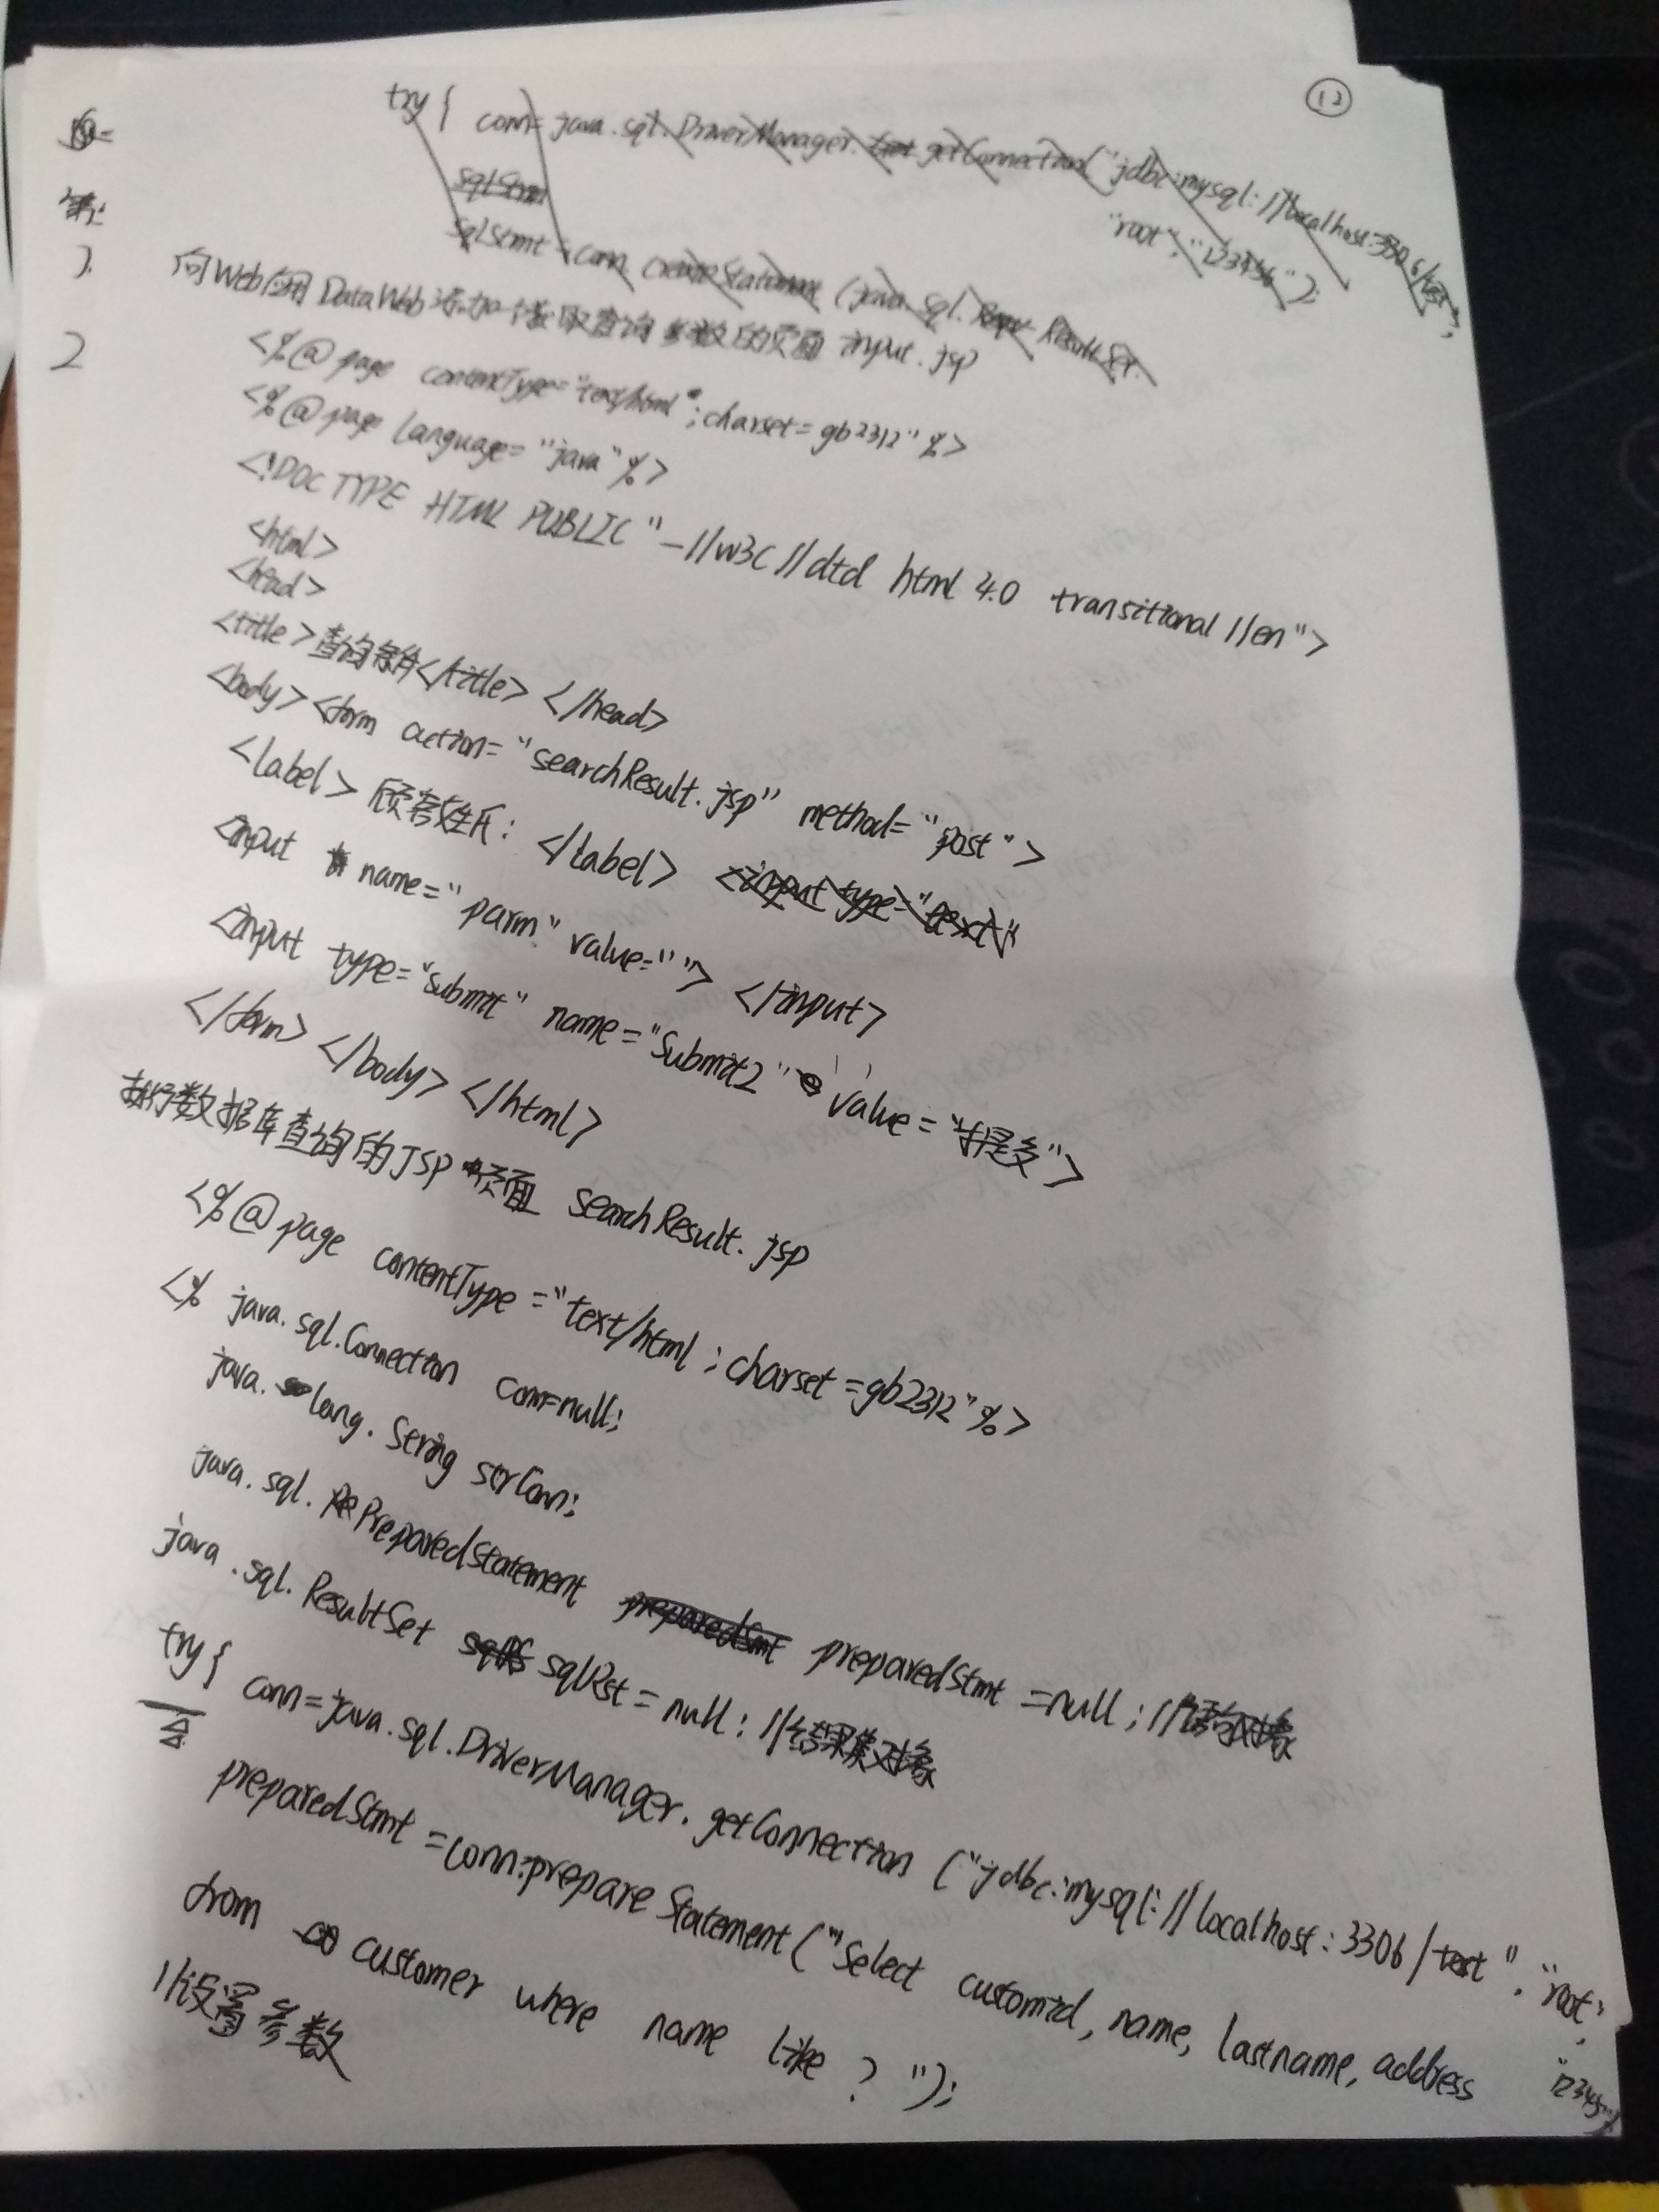 12
try { conn=java.sql.DriverManager. getConnection("jdbc:mysql://localhost:3306/
"root", "123456");
sqlStmt
sqlStmt = conn. createStatement (java. sql. ResultSet.
1.
向Web应用DataWeb添加一个获取查询参数的页面 input.jsp
2
<%@ page contentType="text/html";charset=gb2312" %>
<%@ page language="java" %>
<!DOCTYPE HTML PUBLIC "-//w3c//dtd html 4.0 transitional//en">
<html>
<head>
<title>查询条件</title> </head>
<body><form action="searchResult.jsp" method="post">
<label>顾客姓氏: </label> <input type="text"
<input name="parm" value=""> </input>
<input type="submit" name="Submit2" value="提交">
</form> </body> </html>
执行数据库查询的JSP页面 searchResult.jsp
<%@ page contentType="text/html;charset=gb2312"%>
<% java.sql.Connection conn=null;
java.lang.String strConn;
java.sql.PreparedStatement preparedSmt preparedStmt=null; //语句对象
java.sql.ResultSet sqlRst=null; //结果集对象
try{ conn=java.sql.DriverManager.getConnection ("jdbc:mysql://localhost:3306/test", "root",
preparedStmt=conn.prepareStatement("Select customid, name, lastname, address
from customer where name like ? ");
//设置参数